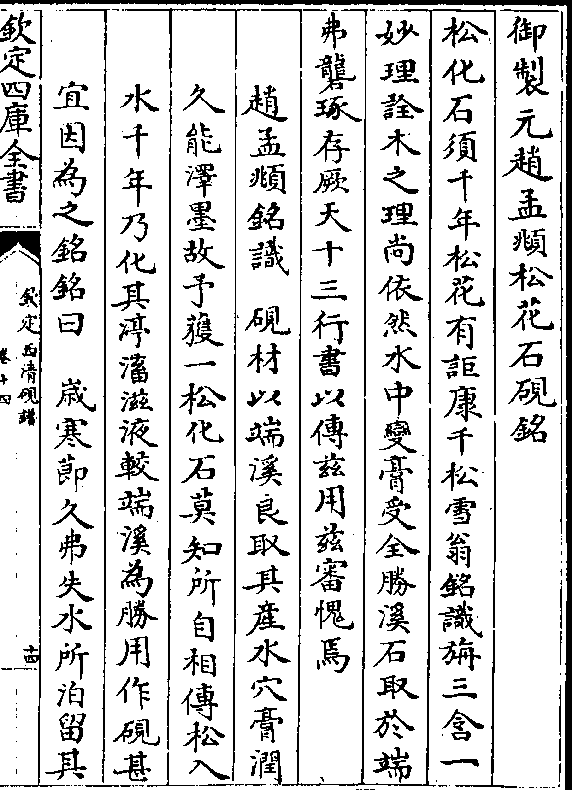 御製元趙孟頫松花石硯銘
松化石須千年松花有詎康千松雪翁銘識旃三含一
妙理詮木之理尚依然水中變膏受全勝溪石取於端
弗礱琢存厥天十三行書以傳茲用茲審愧焉
趙孟頫銘識　硯材以端溪良取其產水穴膏潤
久能澤墨故予獲一松化石莫知所自相傳松入
水千年乃化其渟瀋滋液較端溪為勝用作硯甚
宜因為之銘銘曰　歲寒節久弗失水所泊留其
欽定四庫全書
欽定西清硯譜
卷十四
十四